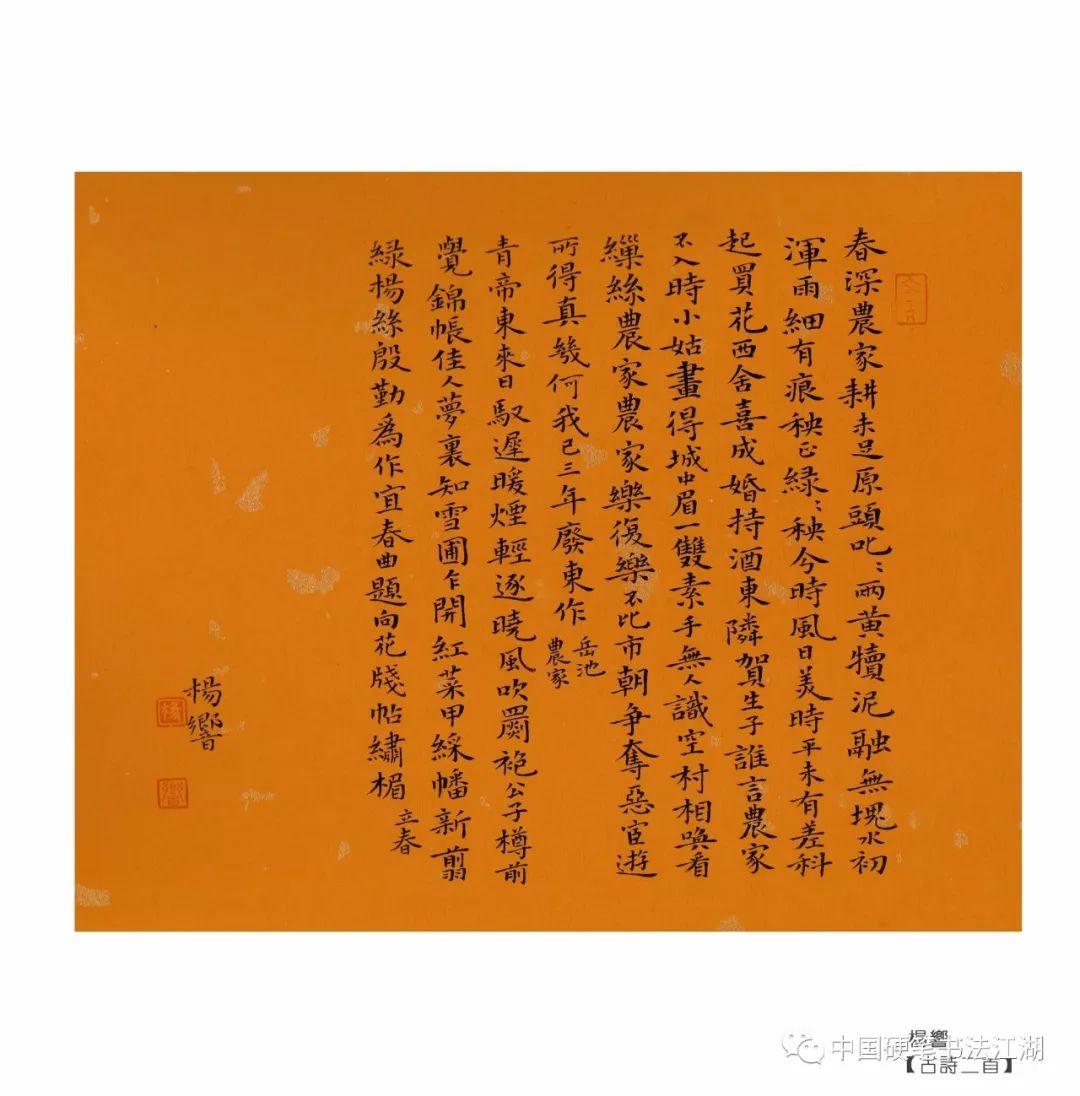 春深農家耕未足原頭叱〻兩黄犢泥融無塊水初
渾雨細有痕秧正緑〻秧今時風日美時平未有差科
起買花西舍喜成婚持酒東隣賀生子誰言農家
不入時小姑畫得城中眉一雙素手無人識空村相喚看
繅絲農家農家樂復樂不比市朝爭奪惡宦遊
所得真幾何我已三年廢東作
岳池
農家
青帝東來日馭遲暖煙輕逐曉風吹罽袍公子樽前
覺錦帳佳人夢裏知雪圃乍開紅菜甲綵幡新翦
緑楊絲殷勤為作宜春曲題向花牋帖繡楣
立春
楊響
楊
響
楊響
【古詩二首】
中国硬笔书法江湖